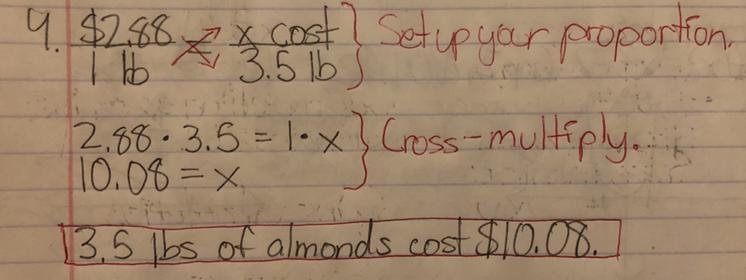 9. $2.88 = x cost } Set up your proportion.
1 lb 3.5 lb
2.88 · 3.5 = 1 · x } Cross-multiply.
10.08 = x
3.5 lbs of almonds cost $10.08.